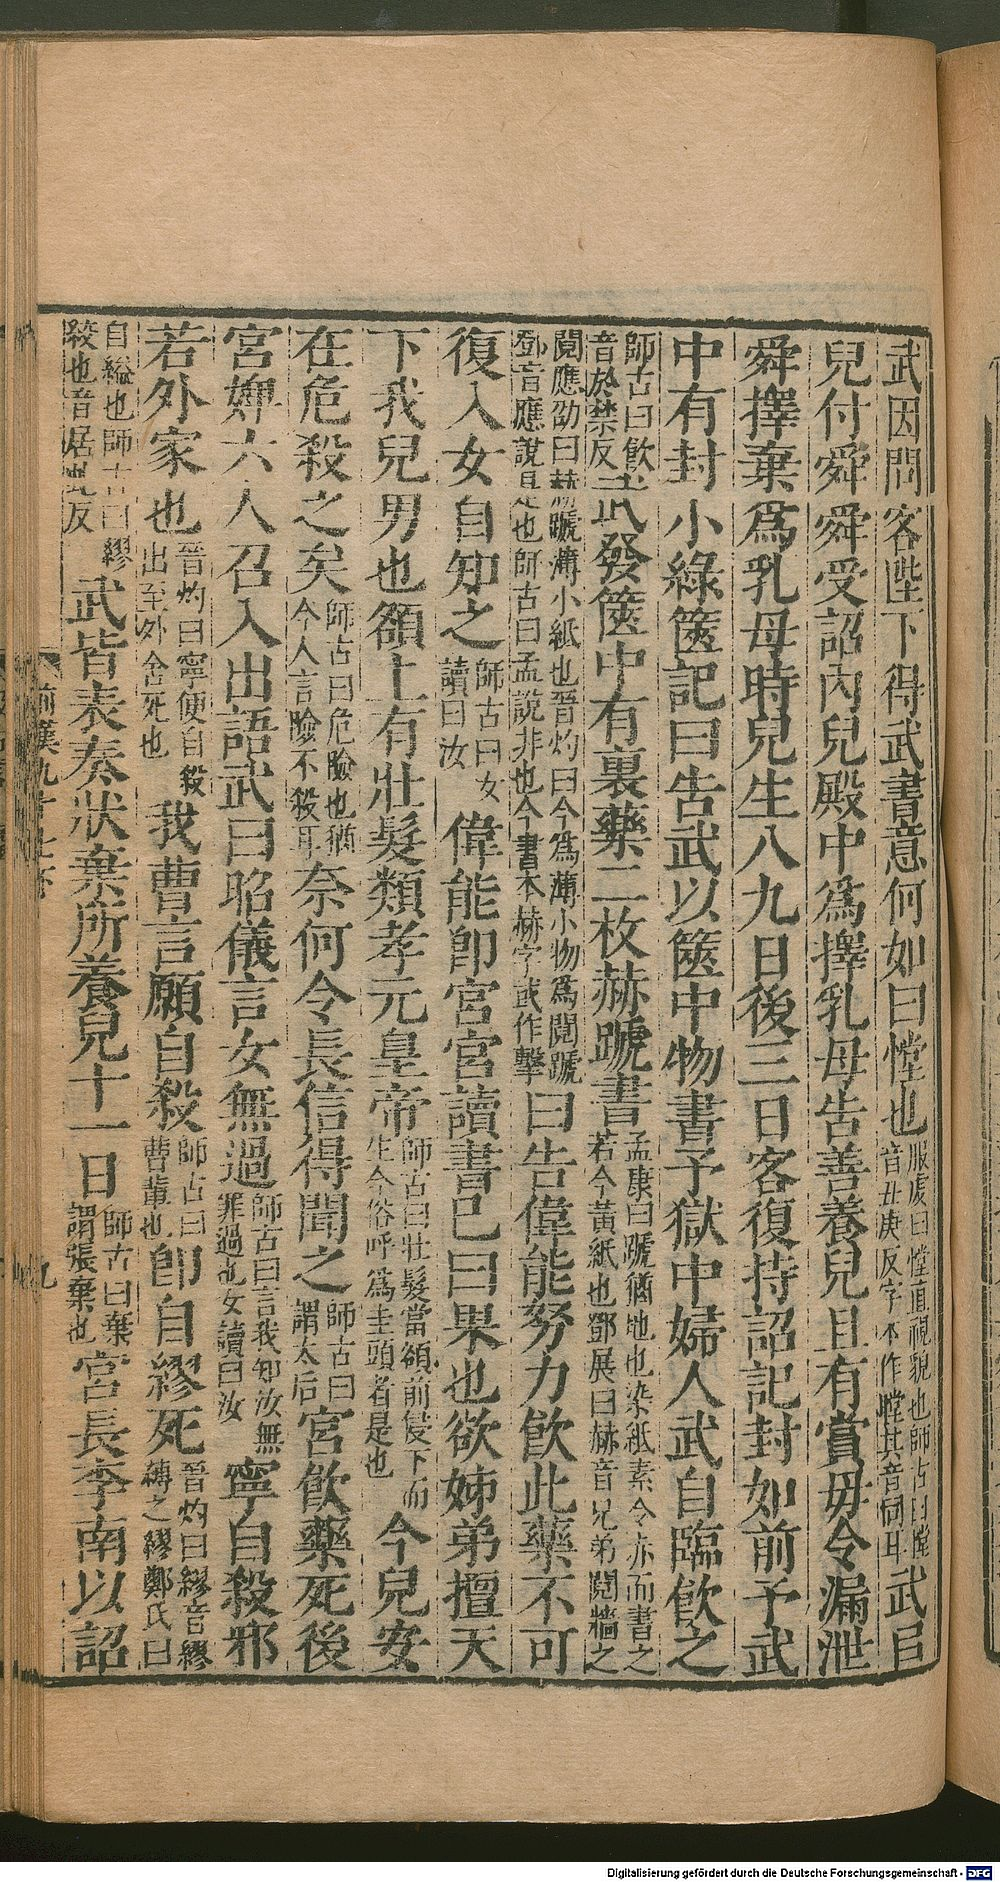 武因問客陛下得武書意何如曰憆也服虔曰憆直視貌也師古曰憆音丑庚反字本作瞠其音同耳武以
兒付舜舜受詔內兒殿中爲擇乳母告善養兒且有賞毋令漏泄
舜擇棄爲乳母時兒生八九日後三日客復持詔記封如前予武
中有封小綠篋記曰告武以篋中物書予獄中婦人武自臨飲之
師古曰飲音於禁反武發篋中有裹藥二枚赫蹏書孟康曰蹏猶地也染紙素令赤而書之若今黃紙也鄧展曰赫音兄弟鬩牆之
鬩應劭曰赫蹏薄小紙也晉灼曰今爲薄小物爲鬩蹏鄧音應說是也師古曰孟說非也今書本赫字或作擊曰告偉能努力飲此藥不可
復入女自知之師古曰女讀曰汝偉能卽宮宮讀書已曰果也欲姊弟擅天
下我兒男也額上有壯髮類孝元皇帝師古曰壯髮當額前侵下而生今俗呼爲圭頭者是也今兒安
在危殺之矣師古曰危險也猶今人言險不殺耳奈何令長信得聞之師古曰謂太后宮飲藥死後
宮婢六人召入出語武曰昭儀言女無過師古曰言我知汝無罪過也女讀曰汝寧自殺邪
若外家也晉灼曰寧便自殺出至外舍死也我曹言願自殺師古曰曹輩也卽自繆死晉灼曰繆音繆縛之繆鄭氏曰
自縊也師古曰繆絞也音居虬反武皆表奏狀棄所養兒十一日師古曰棄謂張棄也宮長李南以詔
前漢九十七下
九
Digitalisierung gefördert durch die Deutsche Forschungsgemeinschaft - DFG